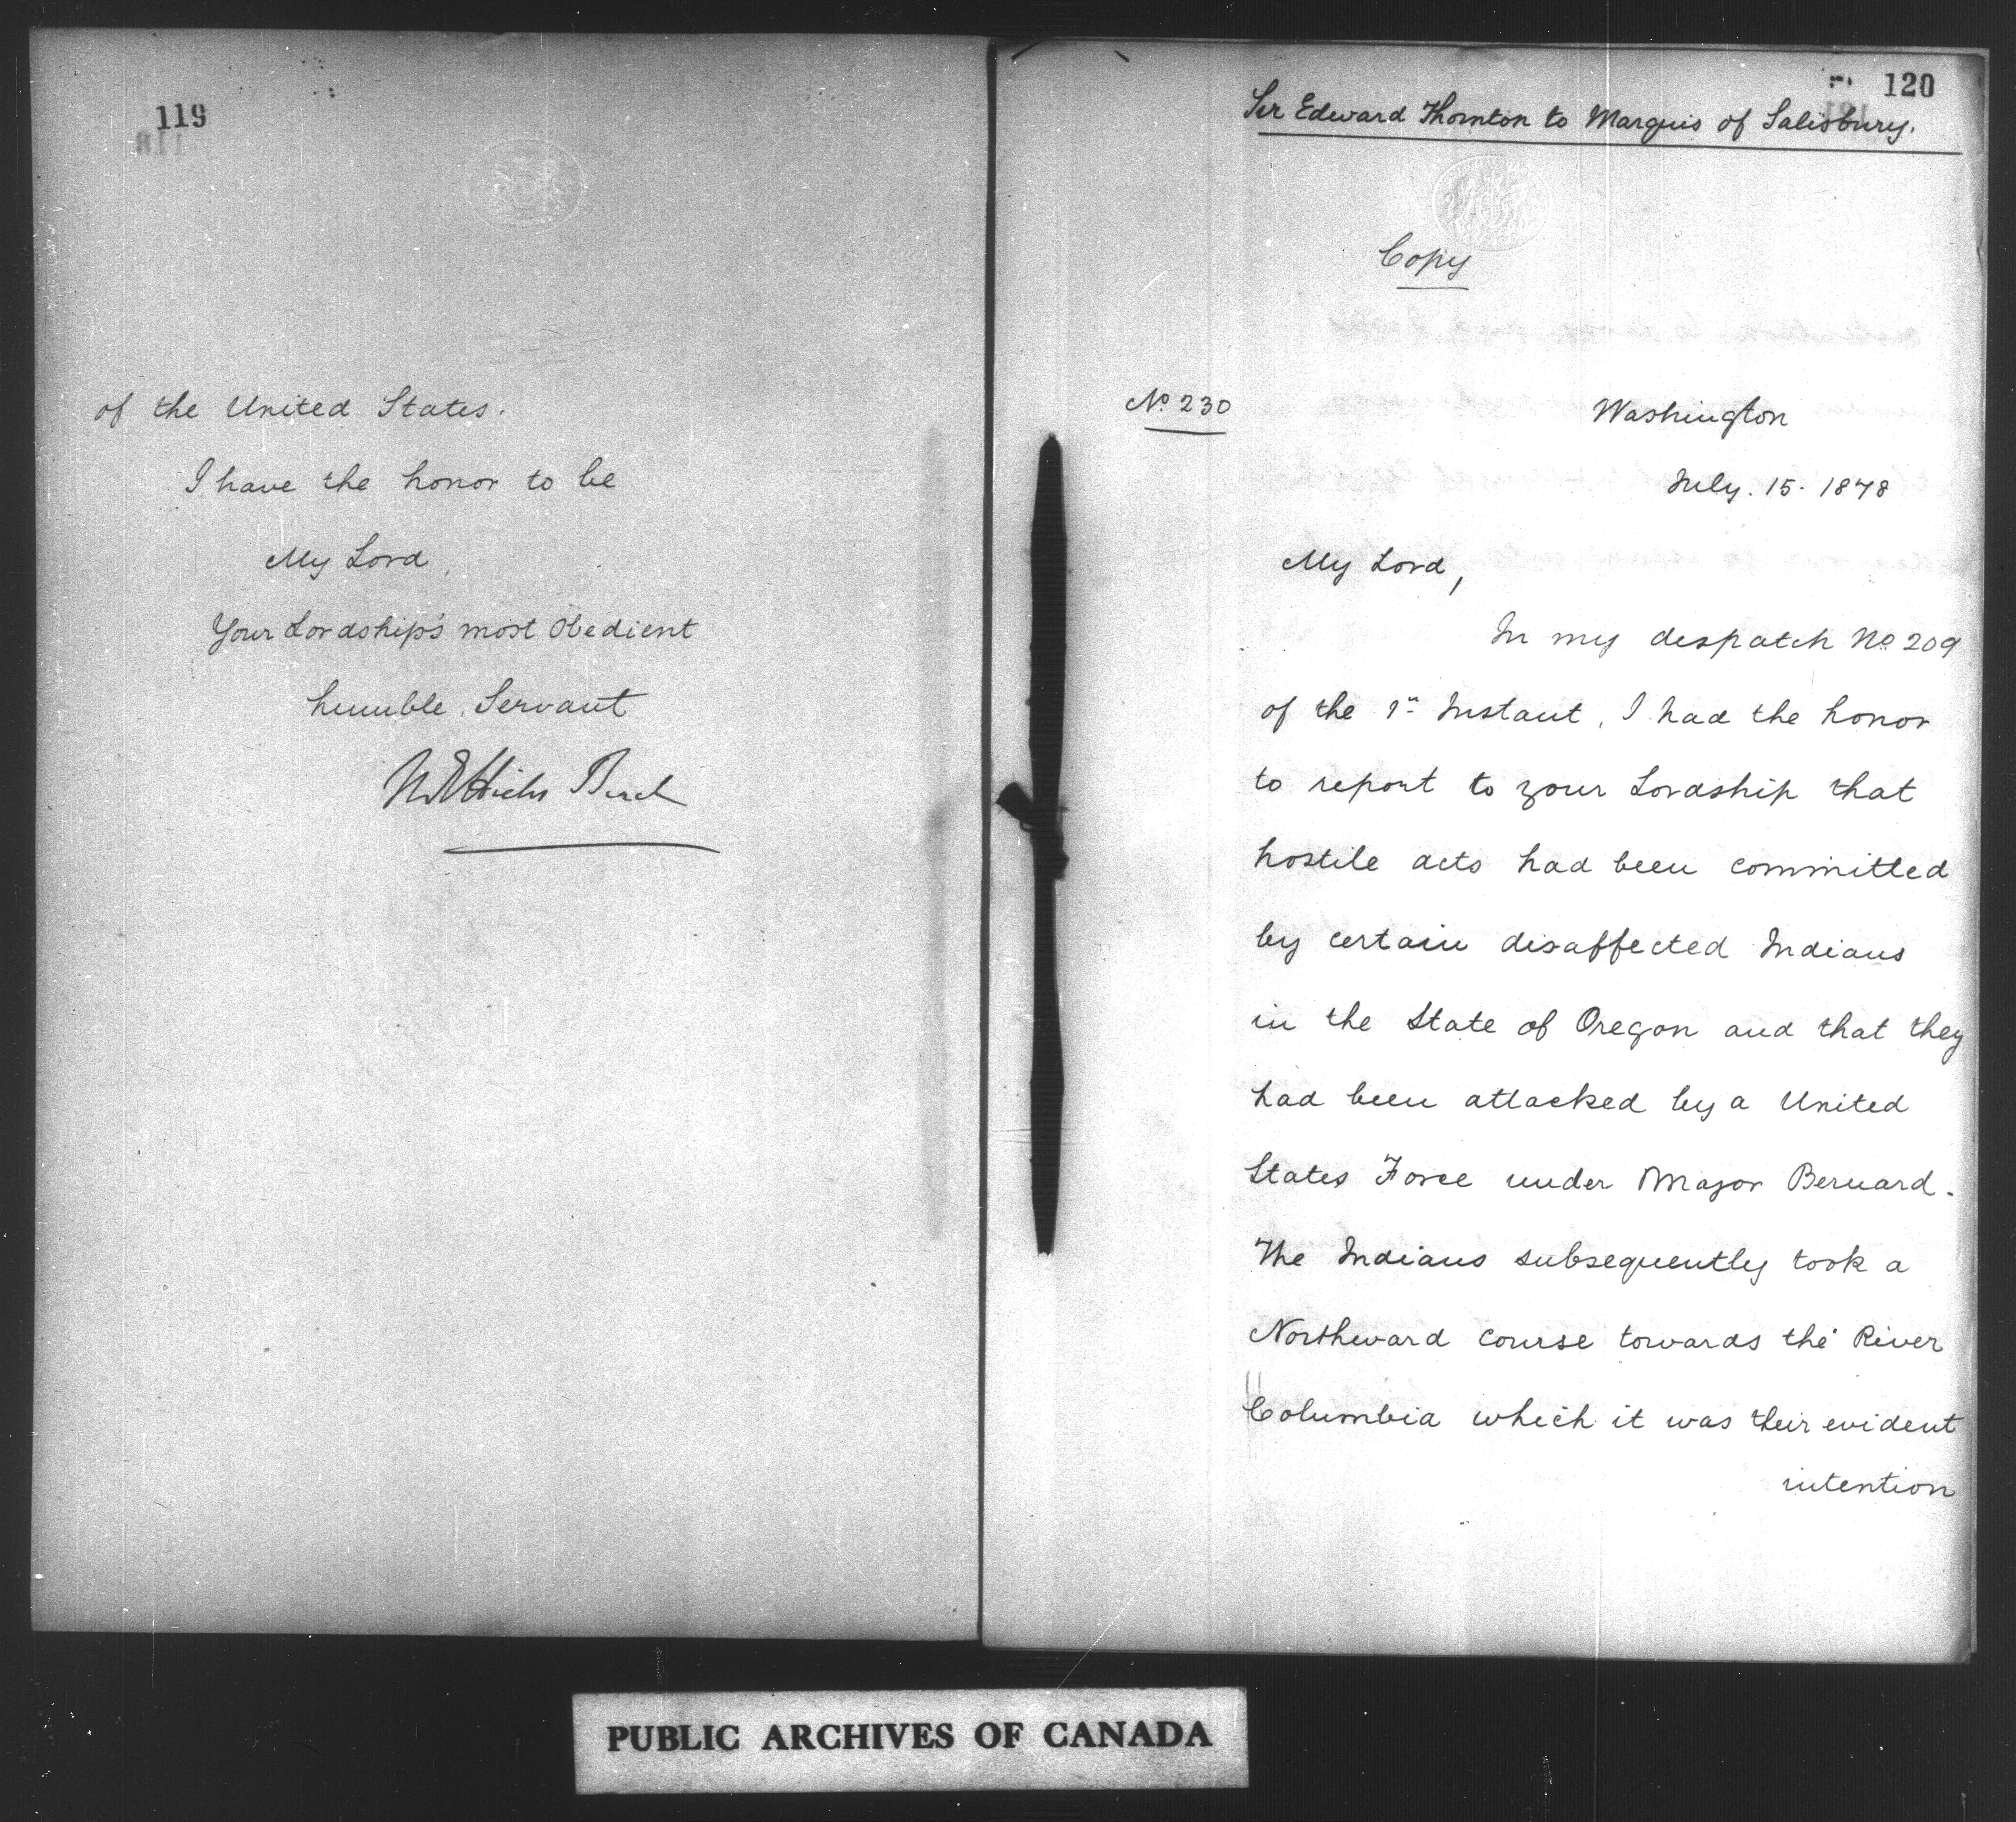 119
of the United States.
I have the honor to be
My Lord,
Your Lordship's most obedient
humble Servant
120
Sir Edward Thornton to Marquis of Salisbury.
Copy
No. 230
Washington
July. 15. 1878
My Lord,
In my despatch No. 209
of the 1st Instant, I had the honor
to report to your Lordship that
hostile acts had been committed
by certain disaffected Indians
in the State of Oregon and that they
had been attacked by a United
States Force under Major Bernard.
The Indians subsequently took a
Northward course towards the River
Columbia which it was their evident
intention
PUBLIC ARCHIVES OF CANADA